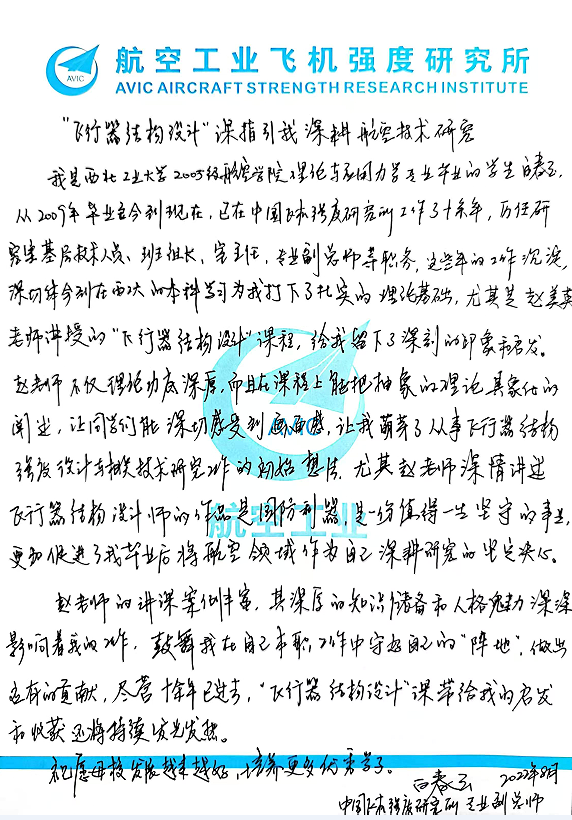 AVIC
航空工业飞机强度研究所
AVIC AIRCRAFT STRENGTH RESEARCH INSTITUTE
"飞行器结构设计"课指引我深耕航空技术研究
我是西北工业大学2005级航空学院理论与应用力学专业毕业的学生白春玉,
从2009年毕业至今到现在,已在中国飞机强度研究所工作了十余年,历任研
究室基层技术人员、班组长、室主任、专业副总师等职务,这些年的工作沉淀,
深切体会到在西大的本科学习为我打下了扎实的理论基础,尤其是赵美英
老师讲授的"飞行器结构设计"课程,给我留下了深刻的印象和启发。
赵老师不仅理论功底深厚,而且在课程上能把抽象的理论具象化的
阐述,让同学们能深切感受到画面感,让我萌芽了从事飞行器结构
强度设计与相关技术研究工作的初始想法,尤其赵老师深情讲述
飞行器结构设计师的作品是国防利器,是一份值得一生坚守的事业,
更加促进了我毕业后将航空领域作为自己深耕研究的坚定决心。
赵老师的讲课案例丰富,其深厚的知识储备和人格魅力深深
影响着我的工作,鼓舞我在自己本职工作中守好自己的"阵地",做出
应有的贡献,尽管十余年已过去,"飞行器结构设计"课带给我的启发
和收获还将持续发光发热。
祝愿母校发展越来越好,培养更多优秀学子。
白春玉 2022年8月
中国飞机强度研究所 专业副总师
航空工业